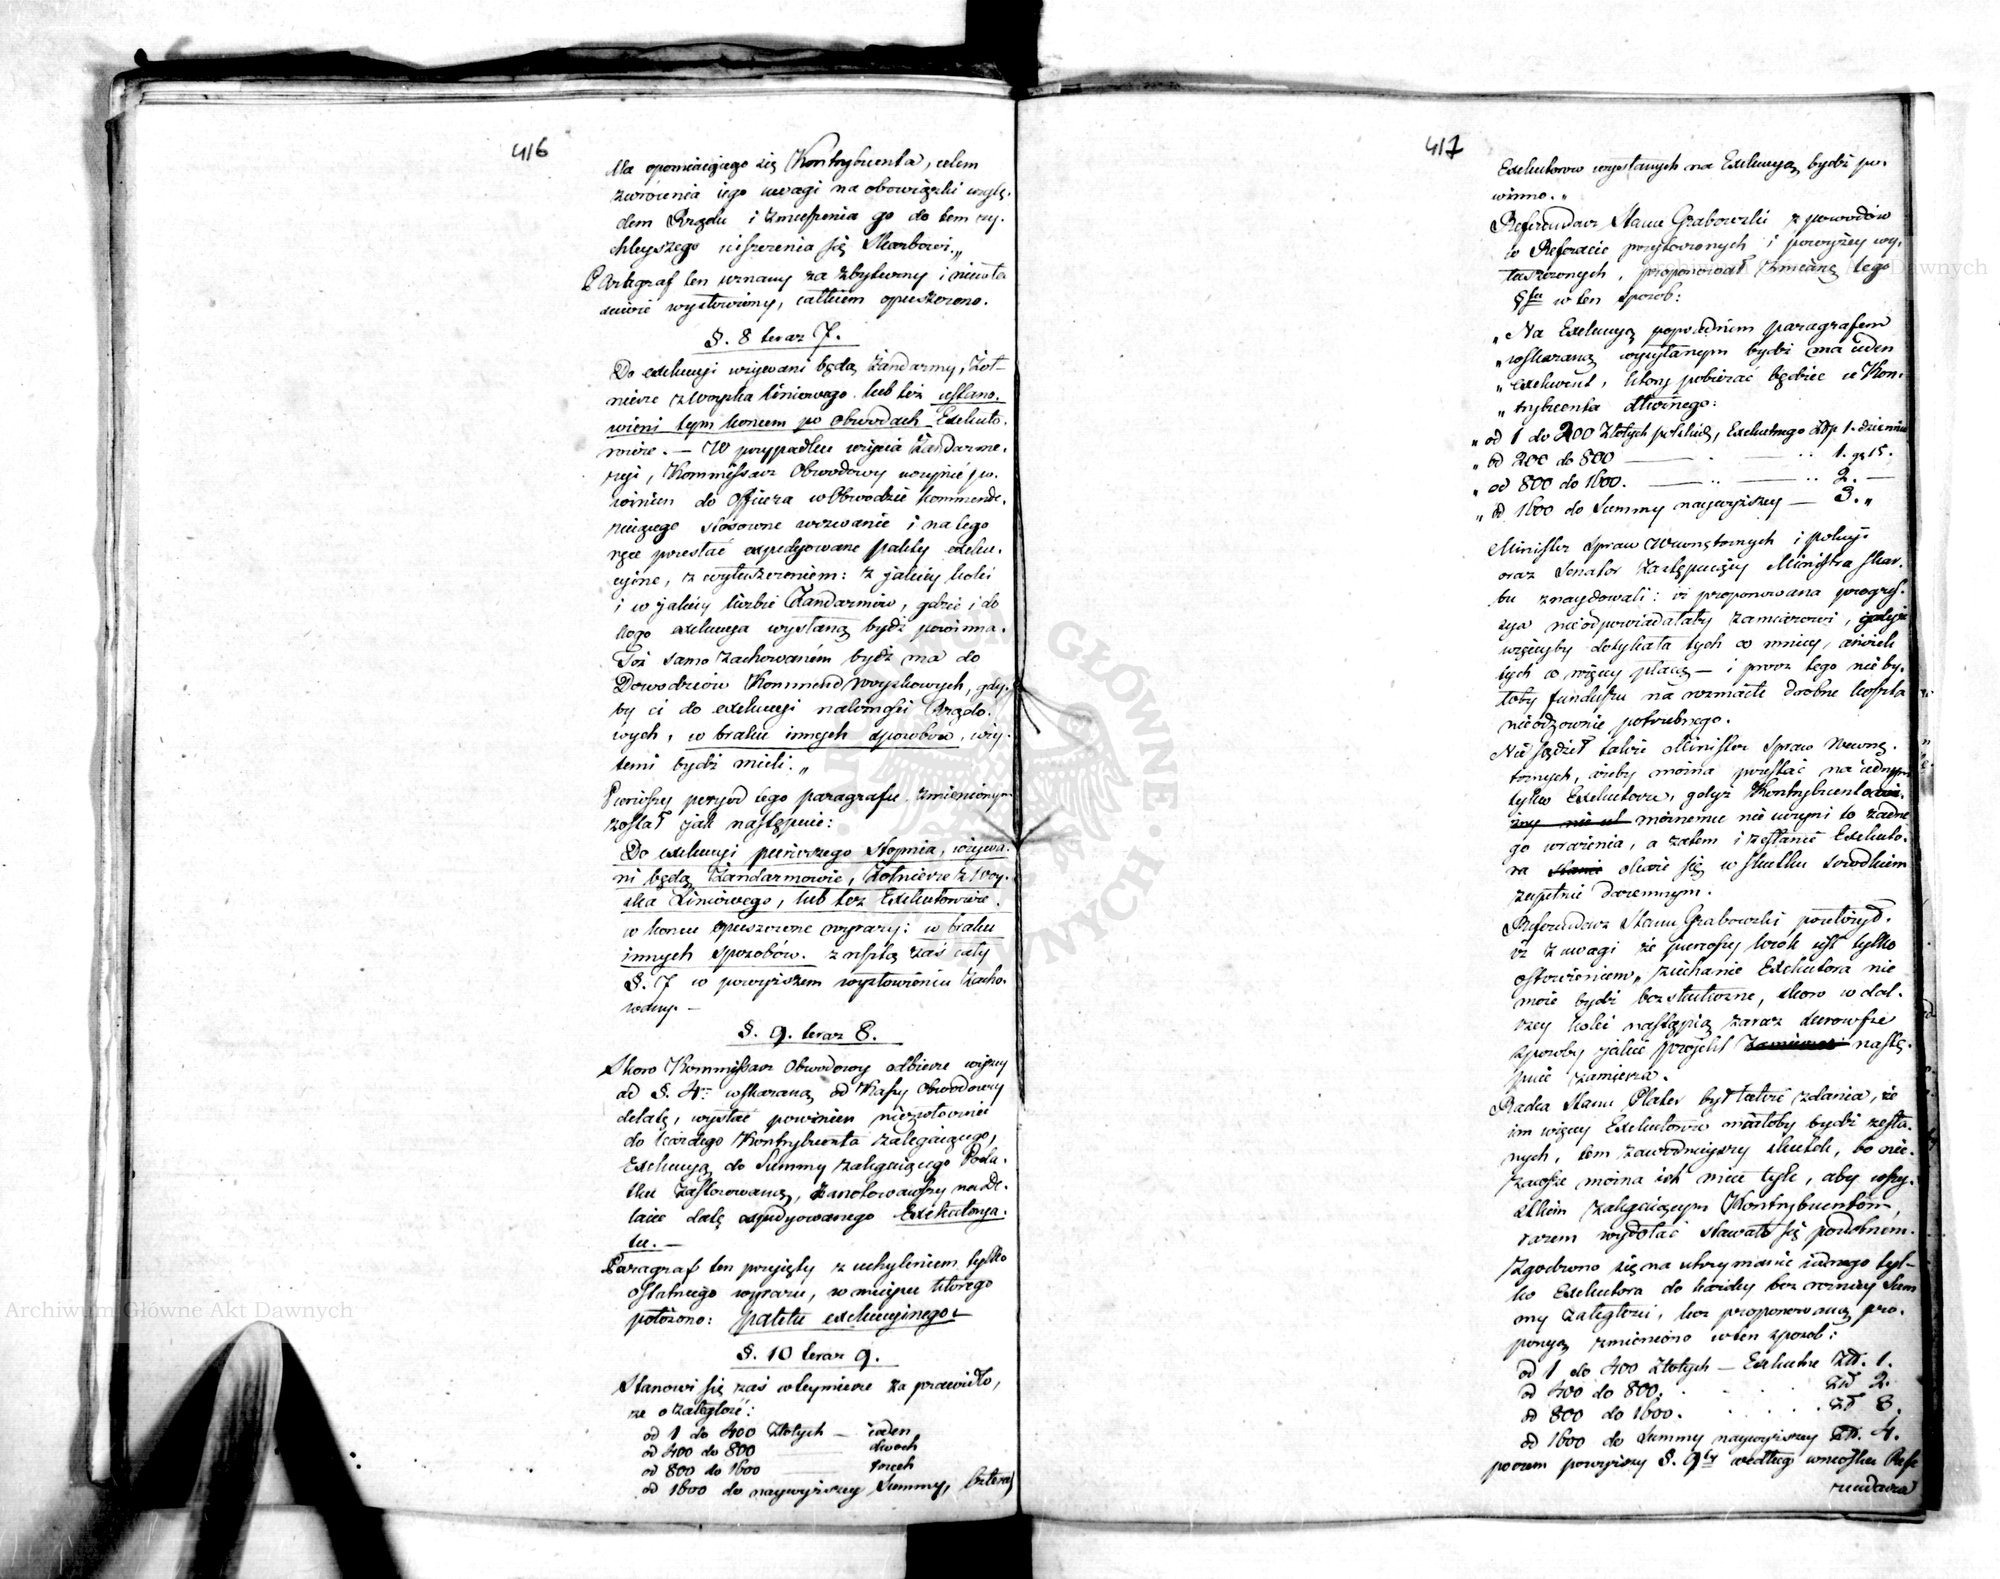 416
dla opóźniaiącego się Kontrybuenta, celem
zwrócenia iego uwagi na obowiązki wzglę-
dem Rządu i zmuszenia go do tem ry-
chleyszego uiszczenia się Skarbowi.„
Paragraf ten uznany za zbyteczny i
wysłowiony, całkiem opuszczono.
§. 8 teraz 7.
Do exekucyi używani będą Żandarmy, Żoł-
nierze z woyska liniowego lub też ustano-
wieni tym końcem po Obwodach Exekuto-
rowie. — W przypadku użycia Żandarme-
ryi, Kommissarz Obwodowy uczynić po-
winien do Officera w Obwodzie kommende-
ruiącego stosowne wezwanie i na iego
ręce przesłać expedyowane palety exeku-
cyine, z wytłuszczeniem: z jakiey kolei
i w jakiey liczbie Żandarmów, gdzie i do
kogo exekucya wysłaną bydź powinna.
Toż samo zachowaném bydź ma do
Dowodzców Kommend Woyskowych, gdy-
by ci do exekucyi należności Rządo-
wych, w braku innych sposobów, uży-
temi bydź mieli.„
Pierwszy peryod tego paragrafu zmienionym
został jak następuie:
Do exekucyi pierwszego stopnia, używa-
ni będą Żandarmowie, Żołnierze z woy-
ska Liniowego, lub też Exekutorowie.
w końcu opuszczone wyrazy: w braku
innych sposobów. zresztą zaś cały
§. 7 w powyższem wysłowieniu zacho-
wany. —
§. 9. teraz 8.
Skoro Kommissarz Obwodowy odbierze wyżey
ad §. 4. wskazaną od Kassy Obwodowey
delatę, wysłać powinien niezwłocznie
do każdego Kontrybuenta zalegaiącego,
Exekucyą do Summy zalegaiącego Poda-
tku zastosowaną, zanotowawszy na De-
lacie datę expedyowanego Exekutorya-
tu. —
Paragraf ten przyięty z uchyleniem tylko
ostatniego wyrazu, w mieyscu którego
położono: paletu exekucyinego.
§. 10 teraz 9.
Stanowi się zaś w teymierze za prawidło,
że o zaległość:
od 1 do 400 Złotych — ieden
od 400 do 800 — dwóch
od 800 do 1600 — trzech
od 1600 do naywyższey Summy, czterech
417
Exekutorów wysłanych na Exekucyą bydź po-
winno.„
Referendarz Stanu Grabowski z powodów
w Referacie przytoczonych i powyżey wy-
łuszczonych, proponował zmianę tego
§fu w ten sposób:
„ Na Exekucyą poprzednim paragrafem
„ wskazaną wysyłanym bydź ma ieden
„ exekwent, który pobierać będzie u Kon-
„ trybuenta dłużnego:
„ od 1 do 200 Złotych polskich, Exekutnego Złp 1. dziennie
„ od 200 do 800 — 1. gr 15.
„ od 800 do 1600. — 2. —
„ od 1600 do Summy naywyższey — 3. „
Minister Spraw Wewnętrznych i policyi
oraz Senator Zastępuiący Ministra Skar-
bu znaydowali: iż proponowana progres-
sya nieodpowiadałaby zamiarowi, gdyż
więceyby dotykała tych co mniey, aniżeli
tych co więcey płacą — i przez tego nie by-
łoby funduszu na rozmaite drobne koszta
nieodzownie potrzebnego.
Nie sądził także Minister Spraw Wewnę-
trznych, ażeby można przestać na iednym
tylko Exekutorze, gdyż Kontrybuentowi
możnemu nie uczyni to żadne-
go wrażenia, a zatem i zesłanie Exekuto-
ra okaże się w skutku środkiem
zupełnie daremnym.
Referendarz Stanu Grabowski, powtórzył:
iż z uwagi że pierwszy krok iest tylko
ostrzeżeniem, ziechanie Exekutora nie
może bydź bezskuteczne, skoro w dal-
szey kolei nastąpią zaraz surowsze
sposoby jakie projekt nastę-
pnie zamierza.
Radca Stanu Plater był także zdania, że
im więcey Exekutorów miałoby bydź zesła-
nych, tem zawodnieyszy skutek, bo nie-
zawsze można ich mieć tyle, aby wszy-
stkim zalegaiącym Kontrybuentom,
razem wydołać stawało się podobnem.
Zgodzono się na utrzymanie iednego tyl-
ko Exekutora do każdey bez różnicy Sum-
my zaległości, lecz proponowaną pro-
porcyą zmieniono w ten sposób:
od 1 do 400 Złotych — Exekutne Złt. 1.
od 400 do 800. . . . Złt 2.
od 800 do 1600. . . . Złt 3.
od 1600 do Summy naywyższey Złt. 4.
poczem powyższy §. 9ty według wniosku Refe-
rendarza